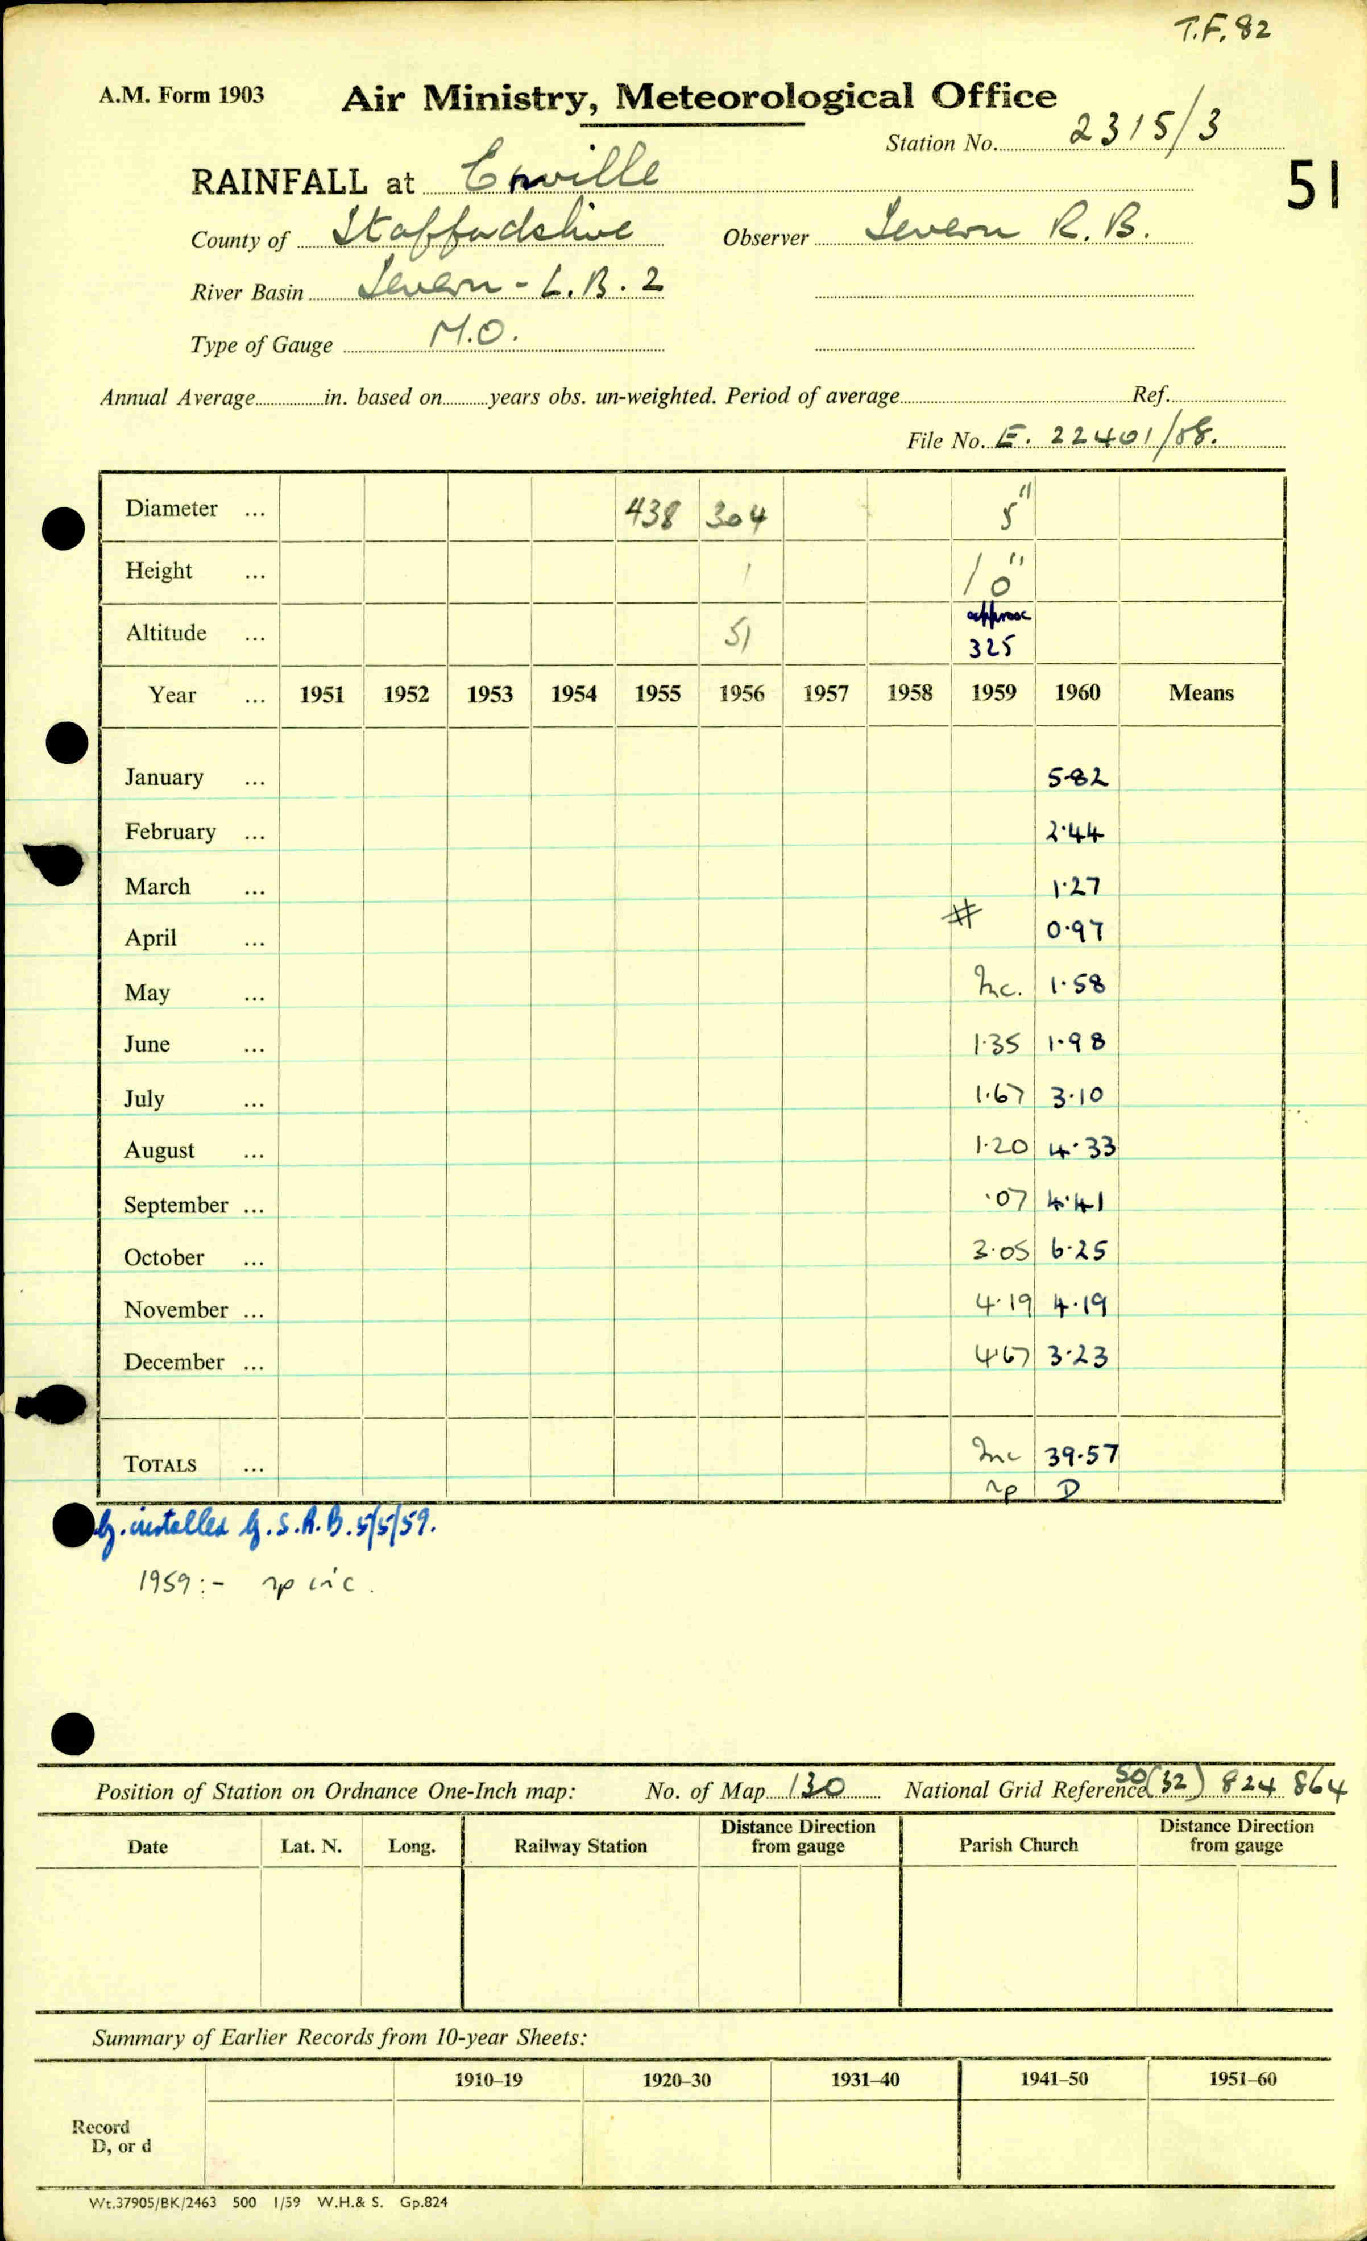 T.F. 82
A.M. Form 1903 Air Ministry, Meteorological Office
Station No. 2315/3
RAINFALL at Enville
51
County of Staffordshire Observer Severn R.B.
River Basin Severn - L.B. 2
Type of Gauge M.O.
Annual Average in. based on years obs. un-weighted. Period of average Ref.
File No. E. 22401/58.
Diameter ... 438 304 5"
Height ... 1 10"
Altitude ... 51 approx 325
Year ... 1951 1952 1953 1954 1955 1956 1957 1958 1959 1960 Means
January ... 5·82
February ... 2·44
March ... 1·27
April ... # 0·97
May ... Inc. 1·58
June ... 1·35 1·98
July ... 1·67 3·10
August ... 1·20 4·33
September ... ·07 4·41
October ... 3·05 6·25
November ... 4·19 4·19
December ... 4·67 3·23
TOTALS ... Inc 39·57
np D
G. installed by S.R.B. 5/5/59.
1959:- np inc.
Position of Station on Ordnance One-Inch map: No. of Map 130 National Grid Reference SO(32) 824 864
Date Lat. N. Long. Railway Station Distance Direction from gauge Parish Church Distance Direction from gauge
Summary of Earlier Records from 10-year Sheets:
1910–19 1920–30 1931–40 1941–50 1951–60
Record
D, or d
Wt.37905/BK/2463 500 1/59 W.H.& S. Gp.824